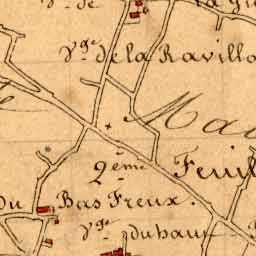 V.ge de la Ravillo
Ma
2.ème Feuil
du Bas Freux.
V.ge du haut